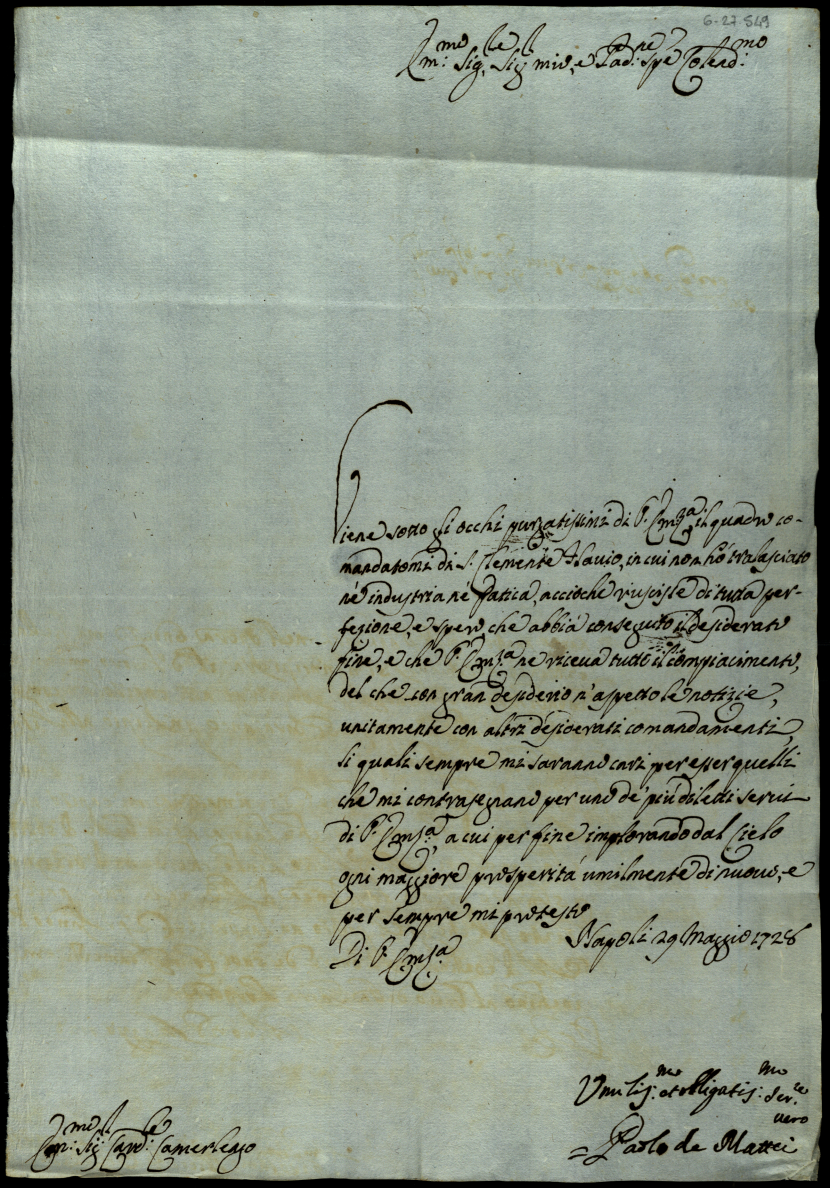 6-27 549
Em:mo Sig,re Sig,l mio, e Pad:ne Spe Colend:mo
Viene sotto gli occhi purgatissimi di V. Em:za il quadro co-
mandatomi di S. Clemente Flavio, in cui non hò tralasciato
nè industria nè fatica, acciochè riuscisse di tutta per-
fezione, e spero, che abbia conseguito il desiderato
fine, e che V. Em:za ne riceva tutto il compiacimento,
del che con gran desiderio n'aspetto le notizie,
unitamente con altri desiderati comandamenti,
li quali sempre mi saranno cari per esser quelli
che mi contrasegnano per uno de' più diletti servi
di V. Em:za, a cui per fine implorando dal Cielo
ogni maggiore prosperità umilmente di nuovo, e
per sempre mi protesto
Di V. Em:za
Napoli 29 Maggio 1728
Umilis:mo et obligatis:mo Ser:re
vero
Paolo de Mattei
Em:mo Sig:l Card:le Camerlengo